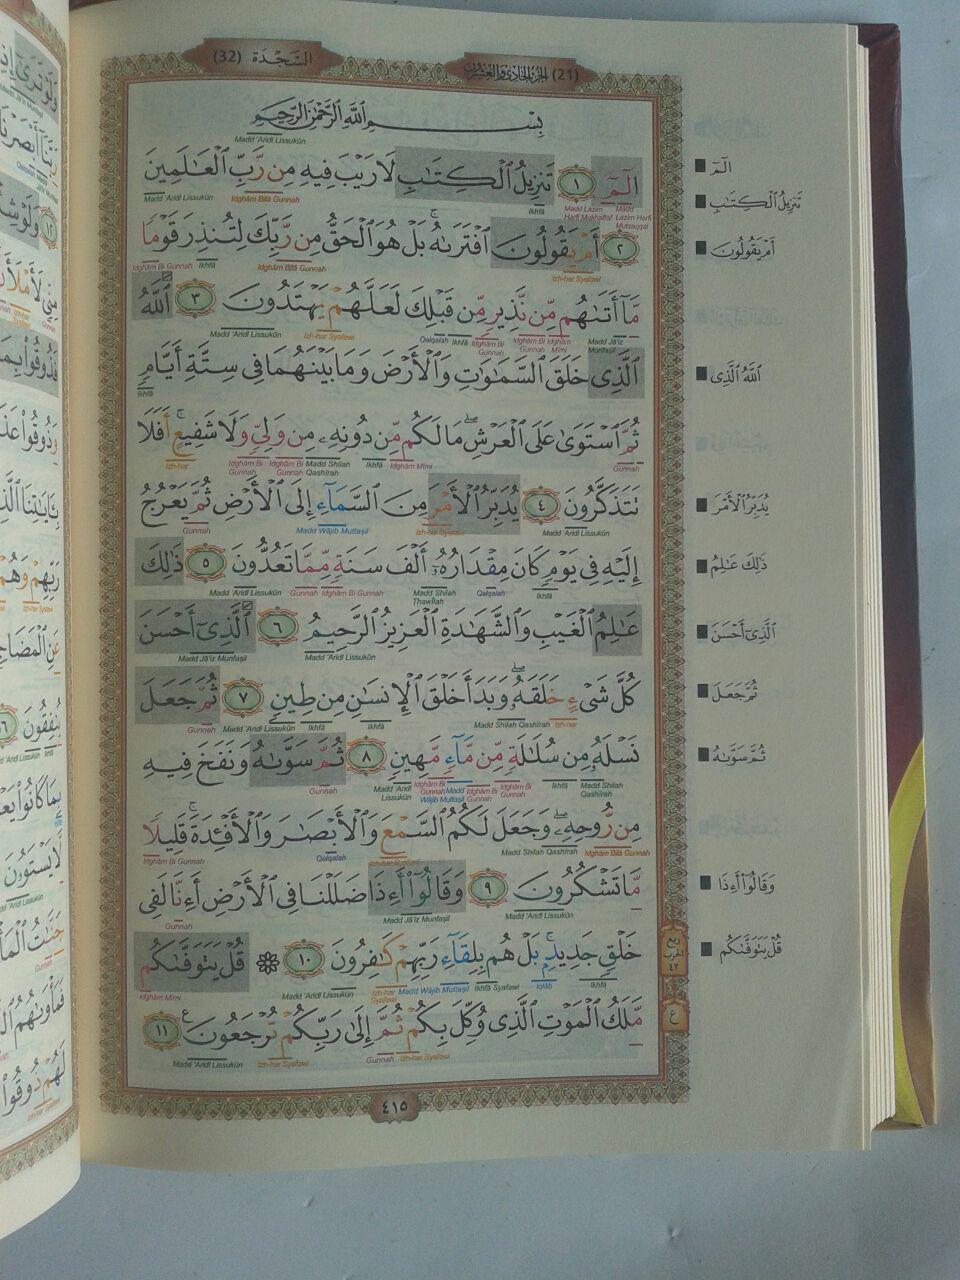 (21) الجزء الحادي والعشرون
السَّجْدَة (32)
بِسْمِ اللَّهِ الرَّحْمَٰنِ الرَّحِيمِ
Madd 'Aridl Lissukūn
الٓمٓ ١ تَنزِيلُ الْكِتَٰبِ لَا رَيْبَ فِيهِ مِن رَّبِّ الْعَٰلَمِينَ
Madd Lazim Harfi Mutsaqqal Madd Lazim Harfi Mukhaffaf Ikhfā Idghām Bilā Gunnah Madd 'Aridl Lissukūn
٢ أَمْ يَقُولُونَ افْتَرَىٰهُ ۚ بَلْ هُوَ الْحَقُّ مِن رَّبِّكَ لِتُنذِرَ قَوْمًا
Izh-har Syafawi Idghām Bilā Gunnah Ikhfā Idghām Bi Gunnah
مَّآ أَتَىٰهُم مِّن نَّذِيرٍ مِّن قَبْلِكَ لَعَلَّهُمْ يَهْتَدُونَ ٣ اللَّهُ
Madd Jā'iz Munfaṣil Idghām Mīmi Idghām Bi Gunnah Idghām Bi Gunnah Ikhfā Qalqalah Izh-har Syafawi Madd 'Aridl Lissukūn
الَّذِى خَلَقَ السَّمَٰوَٰتِ وَالْأَرْضَ وَمَا بَيْنَهُمَا فِى سِتَّةِ أَيَّامٍ
Ikhfā
ثُمَّ اسْتَوَىٰ عَلَى الْعَرْشِ ۖ مَا لَكُم مِّن دُونِهِۦ مِن وَلِىٍّ وَلَا شَفِيعٍ ۚ أَفَلَا
Gunnah Idghām Mīmi Ikhfā Madd Shilah Qashīrah Idghām Bi Gunnah Idghām Bi Gunnah Izh-har
تَتَذَكَّرُونَ ٤ يُدَبِّرُ الْأَمْرَ مِنَ السَّمَآءِ إِلَى الْأَرْضِ ثُمَّ يَعْرُجُ
Madd 'Aridl Lissukūn Izh-har Syafawi Madd Wājib Muttaṣil Gunnah
إِلَيْهِ فِى يَوْمٍ كَانَ مِقْدَارُهُۥٓ أَلْفَ سَنَةٍ مِّمَّا تَعُدُّونَ ٥ ذَٰلِكَ
Ikhfā Qalqalah Madd Shilah Thawīlah Idghām Bi Gunnah Gunnah Madd 'Aridl Lissukūn
عَٰلِمُ الْغَيْبِ وَالشَّهَٰدَةِ الْعَزِيزُ الرَّحِيمُ ٦ الَّذِىٓ أَحْسَنَ
Madd 'Aridl Lissukūn Madd Jā'iz Munfaṣil
كُلَّ شَىْءٍ خَلَقَهُۥ ۖ وَبَدَأَ خَلْقَ الْإِنسَٰنِ مِن طِينٍ ٧ ثُمَّ جَعَلَ
Izh-har Madd Shilah Qashīrah Ikhfā Ikhfā Madd 'Aridl Lissukūn Gunnah
نَسْلَهُۥ مِن سُلَٰلَةٍ مِّن مَّآءٍ مَّهِينٍ ٨ ثُمَّ سَوَّىٰهُ وَنَفَخَ فِيهِ
Madd Shilah Qashīrah Ikhfā Idghām Bi Gunnah Idghām Bi Gunnah Madd Wājib Muttaṣil Idghām Bi Gunnah Madd 'Aridl Lissukūn Gunnah
مِن رُّوحِهِۦ ۖ وَجَعَلَ لَكُمُ السَّمْعَ وَالْأَبْصَٰرَ وَالْأَفْـِٔدَةَ ۚ قَلِيلًا
Idghām Bilā Gunnah Madd Shilah Qashīrah Izh-har Syafawi Qalqalah Idghām Bi Gunnah
مَّا تَشْكُرُونَ ٩ وَقَالُوٓا۟ أَءِذَا ضَلَلْنَا فِى الْأَرْضِ أَءِنَّا لَفِى
Madd 'Aridl Lissukūn Madd Jā'iz Munfaṣil Gunnah
خَلْقٍ جَدِيدٍۭ ۚ بَلْ هُم بِلِقَآءِ رَبِّهِمْ كَٰفِرُونَ ١٠ ۞ قُلْ يَتَوَفَّىٰكُم
Ikhfā Iqlāb Ikhfā Syafawi Madd Wājib Muttaṣil Izh-har Syafawi Madd 'Aridl Lissukūn Idghām Mīmi
مَّلَكُ الْمَوْتِ الَّذِى وُكِّلَ بِكُمْ ثُمَّ إِلَىٰ رَبِّكُمْ تُرْجَعُونَ ١١ ع
Izh-har Syafawi Gunnah Izh-har Syafawi Madd 'Aridl Lissukūn
ربع الحزب ٤٢
ع
٤١٥
الٓمٓ
تَنزِيلُ الْكِتَٰبِ
أَمْ يَقُولُونَ
اللَّهُ الَّذِى
يُدَبِّرُ الْأَمْرَ
ذَٰلِكَ عَٰلِمُ
الَّذِىٓ أَحْسَنَ
ثُمَّ جَعَلَ
ثُمَّ سَوَّىٰهُ
وَقَالُوٓا۟ أَءِذَا
قُلْ يَتَوَفَّىٰكُم